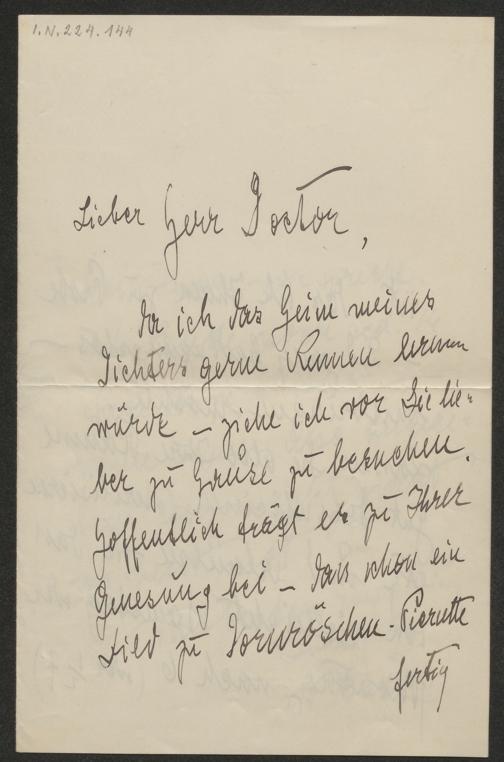 I.N. 224.144
Lieber Herr Doctor,
da ich das Heim meines
Dichters gerne kennen lernen
würde – ziehe ich vor Sie lie-
ber zu Hause zu besuchen.
Hoffentlich trägt es zu Ihrer
Genesung bei – dass schon ein
Lied zu Dornröschen-Pierette
fertig